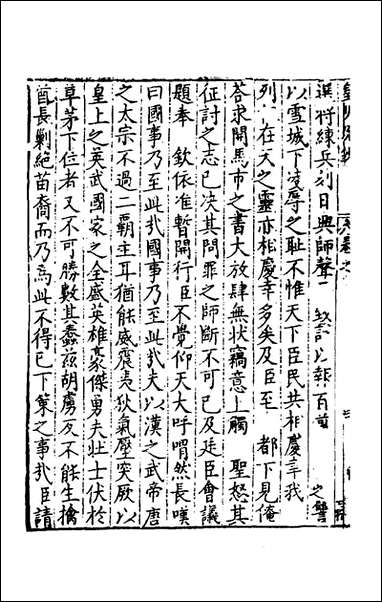 選將練兵刻日興師聲
以雪城下凌辱之恥不惟天下臣民共相慶幸我
列 在天之靈亦相慶幸多矣及臣至 都下見俺
荅求開馬市之書大放肆無狀竊意上觸 聖怒其
征討之志已决其問罪之師斷不可已及廷臣會議
題奉 欽依准暫開行臣不覺仰天大呼喟然長嘆
曰國事乃至此㢤國事乃至此㢤夫以漢之武帝唐
之太宗不過二覇主耳猶能威震夷狄氣壓突厥以
皇上之英武國家之全盛英雄豪傑勇夫壯士伏於
草茅下位者又不可勝數其蠢兹胡虜反不能生擒
酋長剿絕苗裔而乃為此不得已下策之事㢤臣請